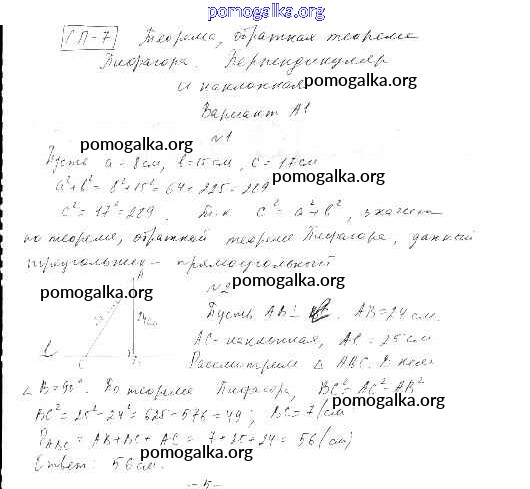 pomogalka.org
СП-7 Теорема, обратная теореме
Пифагора. Перпендикуляр
и наклонная
pomogalka.org
Вариант А1
№1
pomogalka.org
Пусть a = 8 см, b = 15 см, c = 17 см
pomogalka.org
a²+b² = 8²+15² = 64 + 225 = 289
c² = 17² = 289. Т.к c² = a²+b², значит
по теореме, обратной теореме Пифагора, данный
треугольник – прямоугольный
pomogalka.org
№2
pomogalka.org
A
24см
C
Пусть AB ⊥ AB = 24 см.
AC - наклонная, AC = 25 см
pomogalka.org
Рассмотрим △ ABC. В нем
∠B = 90°. По теореме Пифагора, BC² = AC² - AB²
BC² = 25² - 24² = 625 - 576 = 49; BC = 7 (см
pomogalka.org
P ABC = AB + BC + AC = 7 + 25 + 24 = 56 (см)
Ответ: 56 см.
pomogalka.org
- 5 -